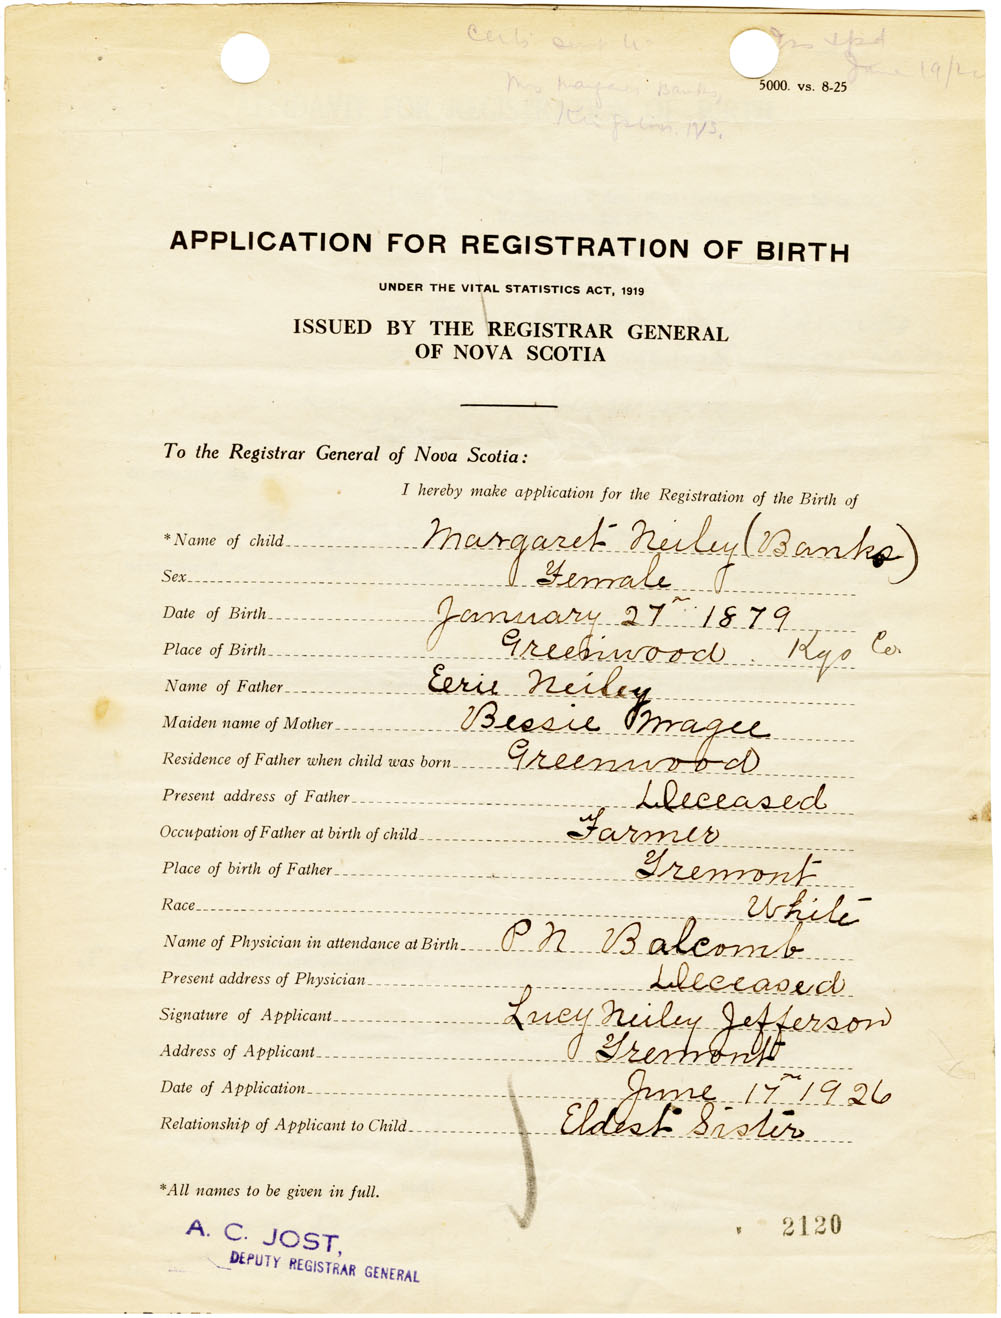 June 19/26
5000. vs. 8-25
Mrs Margaret Banks,
Kingston. N.S.
APPLICATION FOR REGISTRATION OF BIRTH
UNDER THE VITAL STATISTICS ACT, 1919
ISSUED BY THE REGISTRAR GENERAL
OF NOVA SCOTIA
To the Registrar General of Nova Scotia:
I hereby make application for the Registration of the Birth of
*Name of child Margaret Neiley (Banks)
Sex Female
Date of Birth January 27th 1879
Place of Birth Greenwood. Kgs Co.
Name of Father Eerie Neiley
Maiden name of Mother Bessie Magee
Residence of Father when child was born Greenwood
Present address of Father Deceased
Occupation of Father at birth of child Farmer
Place of birth of Father Tremont
Race White
Name of Physician in attendance at Birth P N Balcomb
Present address of Physician Deceased
Signature of Applicant Lucy Neiley Jefferson
Address of Applicant Tremont
Date of Application June 17th 1926
Relationship of Applicant to Child Eldest Sister
*All names to be given in full.
2120
A. C. JOST,
DEPUTY REGISTRAR GENERAL